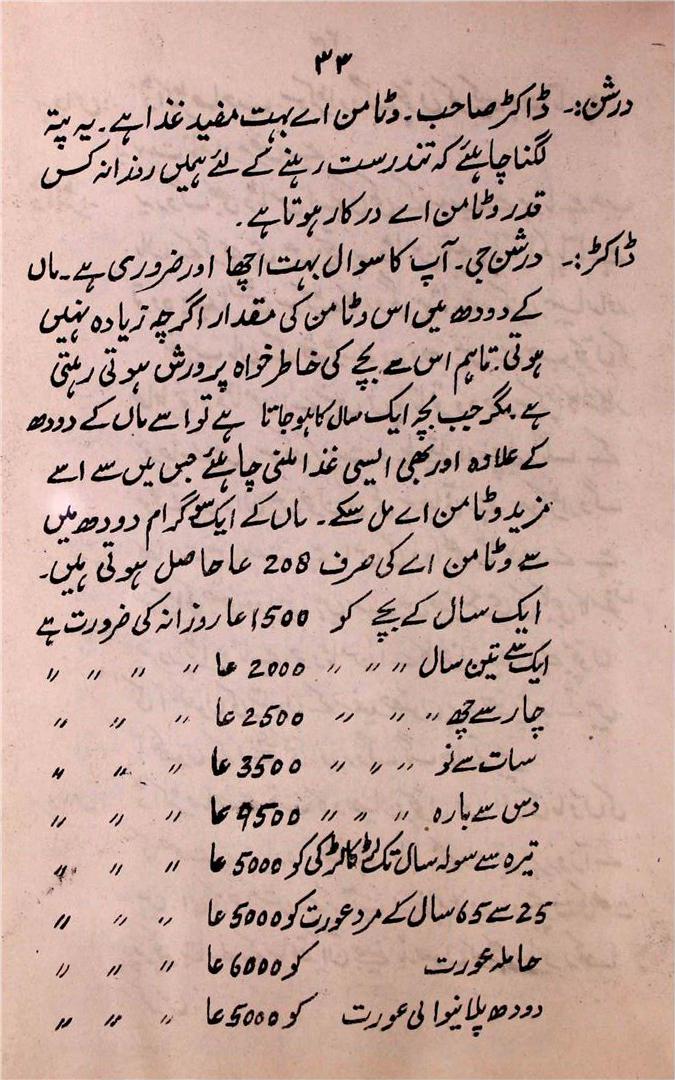 ۳۳
درشن:۔ ڈاکٹر صاحب۔ وٹامن اے بہت مفید غذا ہے۔ یہ پتہ
لگنا چاہئے کہ تندرست رہنے کے لئے ہمیں روزانہ کس
قدر وٹامن اے درکار ہوتا ہے۔
ڈاکٹر:۔ درشن جی۔ آپ کا سوال بہت اچھا اور ضروری ہے۔ ماں
کے دودھ میں اس وٹامن کی مقدار اگرچہ زیادہ نہیں
ہوتی۔ تاہم اس سے بچے کی خاطر خواہ پرورش ہوتی رہتی
ہے۔ مگر جب بچہ ایک سال کا ہو جاتا ہے تو اسے ماں کے دودھ
کے علاوہ اور بھی ایسی غذا ملنی چاہئے جس میں سے اسے
مزید وٹامن اے مل سکے۔ ماں کے ایک سو گرام دودھ میں
سے وٹامن اے کی صرف 208 عا حاصل ہوتی ہیں۔
ایک سال کے بچے کو 1500 عا روزانہ کی ضرورت ہے
ایک سے تین سال 〃 〃 〃 2000 عا 〃 〃 〃 〃
چار سے چھ 〃 〃 〃 2500 عا 〃 〃 〃
سات سے نو 〃 〃 〃 3500 عا 〃 〃 〃
دس سے بارہ 〃 〃 〃 4500 عا 〃 〃 〃
تیرہ سے سولہ سال تک لڑکا لڑکی کو 5000 عا 〃 〃 〃
25 سے 65 سال کے مرد عورت کو 5000 عا 〃 〃 〃
حاملہ عورت کو 6000 عا 〃 〃 〃
دودھ پلانیوالی عورت کو 5000 عا 〃 〃 〃